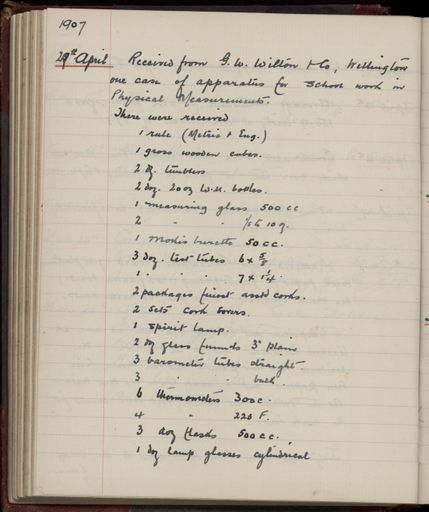 1907
29th April Received from G. W. Wilton & Co, Wellington
one case of apparatus for School work in
Physical Measurements.
There were received
1 rule (Metric & Eng.)
1 gross wooden cubes.
2 dz. tumblers
2 doz. 20 oz W.M. bottles.
1 measuring glass 500 cc
2 " " 10 oz.
1 Mohr's burette 50 cc.
3 doz. test tubes 6 x 5/8
1 " " " 7 x 1 1/4.
2 packages finest asstd corks.
2 sets Cork borers.
1 Spirit Lamp.
2 dz glass funnels 3" plain
3 barometer tubes straight
3 " "
6 thermometers 300 c.
4 " 220 F.
3 doz flasks 500 cc.,
1 doz lamp glasses cylindrical